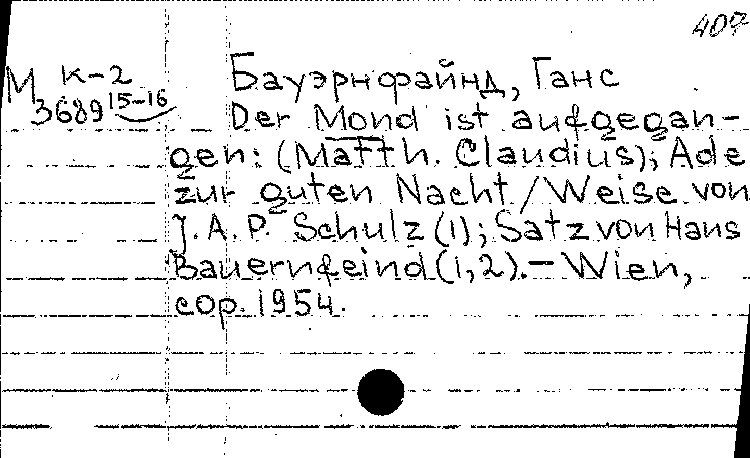 407
М К-2
3689 15-16
Бауэрнфайнд, Ганс
Der Mond ist aufgegan-
gen: (Matth. Claudius); Ade
zur guten Nacht/Weise von
J.A.P. Schulz (1); Satz von Hans
Bauernfeind (1,2).-Wien,
cop. 1954.